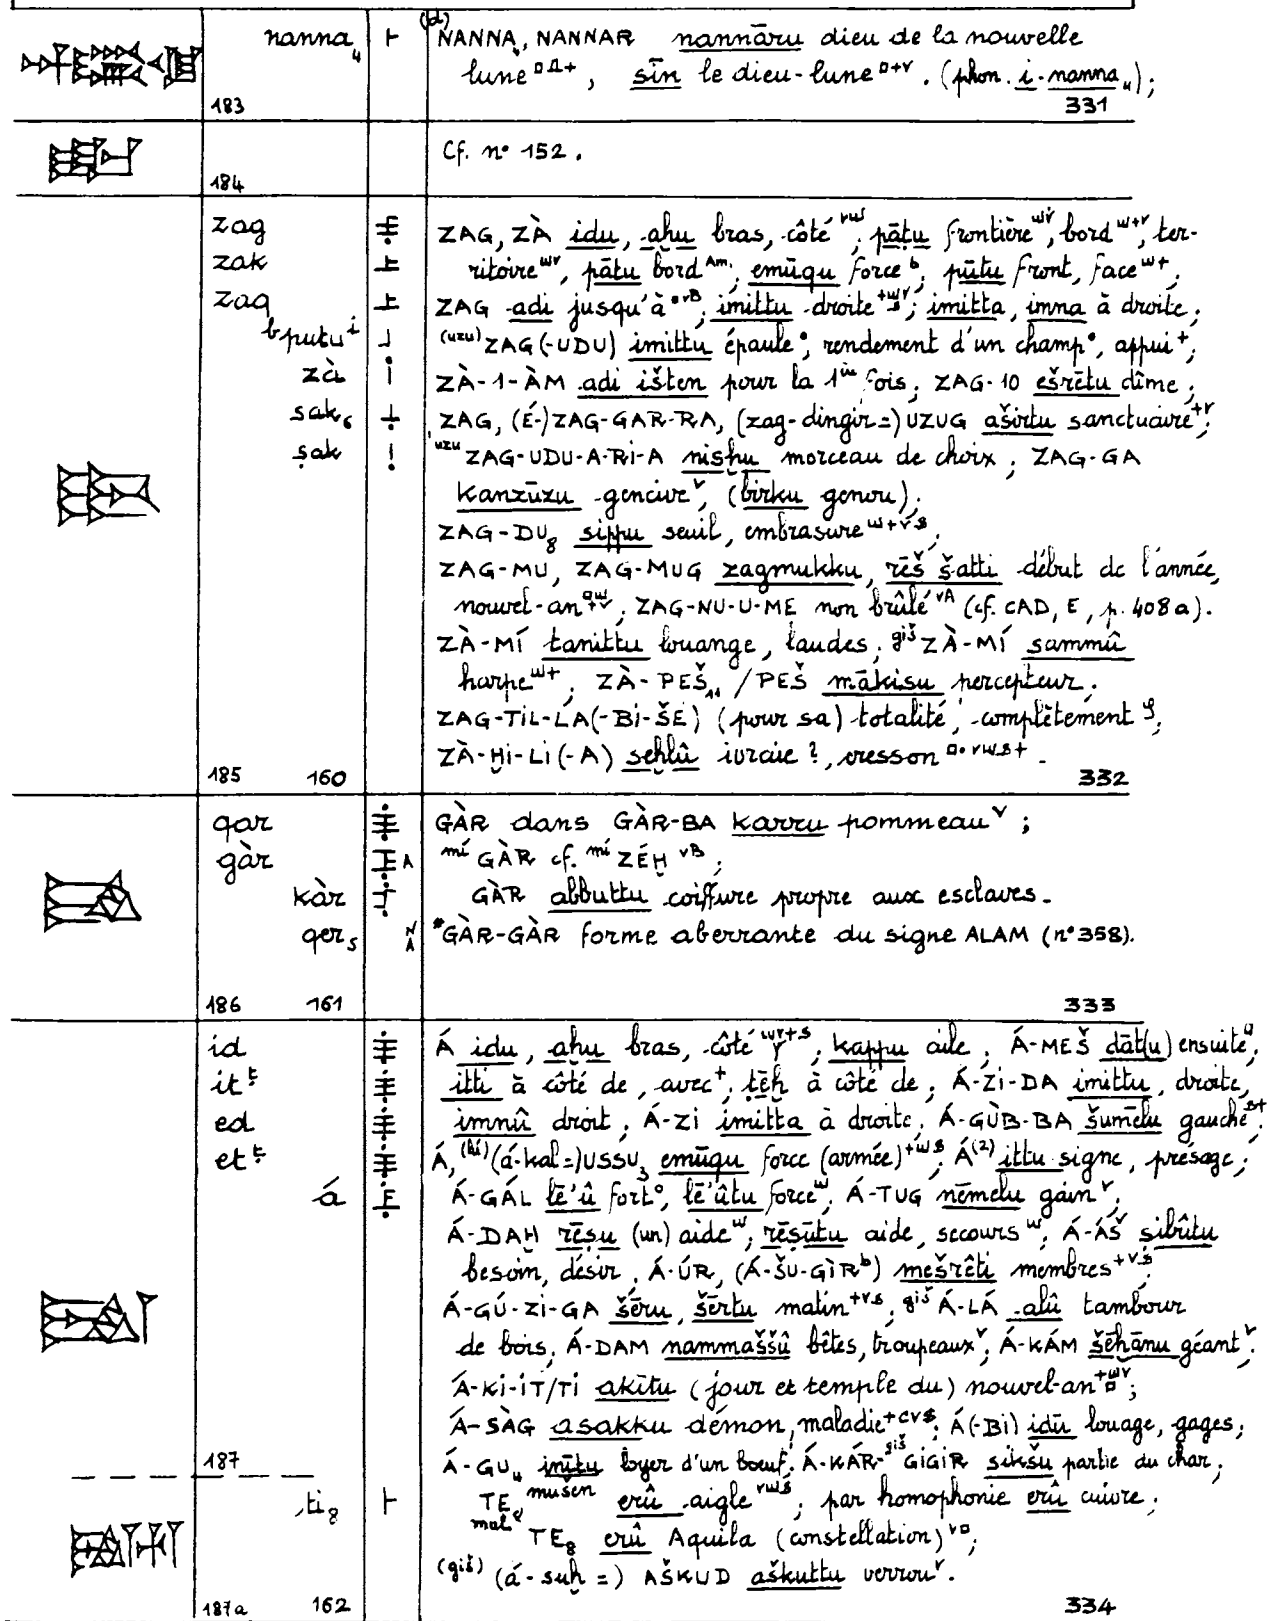 nanna₄ (d) NANNA₄, NANNAR nannāru dieu de la nouvelle
lune, sîn le dieu-lune. (phon. i-nanna₄);
183 331
Cf. n° 152.
184
zag ZAG, ZÀ idu, aḫu bras, côté ; pāṭu frontière, bord, ter-
zak ritoire, pātu bord Am. ; emūqu force b ; pūtu front, face ;
zaq ZAG adi jusqu'à ; imittu droite ; imitta, imna à droite ;
bputu i (uzu) ZAG(-UDU) imittu épaule, rendement d'un champ, appui ;
zà ZÀ-1-ÀM adi ištēn pour la 1ère fois ; ZAG-10 ešrētu dîme ;
sak₆ ZAG, (É-)ZAG-GAR-RA, (zag-dingir=) UZUG aširtu sanctuaire ;
ṣak uzu ZAG-UDU-A-RI-A nisḫu morceau de choix ; ZAG-GA
kanzūzu gencive, (birku genou) ;
ZAG-DU₈ sippu seuil, embrasure ;
ZAG-MU, ZAG-MUG zagmukku, rēš šatti début de l'année,
nouvel-an ; ZAG-NU-U-ME non brûlé (cf. CAD, E, p. 408a).
ZÀ-MÍ tanittu louange, laudes ; giš ZÀ-MÍ sammû
harpe ; ZÀ-PEŠ₁₁/PEŠ mākisu percepteur ;
ZAG-TIL-LA(-BI-ŠE) (pour sa) totalité, complètement ;
ZÀ-ḪI-LI(-A) seḫlû ivraie ?, cresson.
185 160 332
qar GÀR dans GÀR-BA karru pommeau ;
gàr mí GÀR cf. mí ZÉḪ ;
kàr GÀR abbuttu coiffure propre aux esclaves.
qer₅ *GÀR-GÀR forme aberrante du signe ALAM (n° 358).
186 161 333
id Á idu, aḫu bras, côté ; kappu aile ; Á-MEŠ dāt(u) ensuite ;
it ṭ itti à côté de, avec ; ṭēḫ à côté de ; Á-ZI-DA imittu, droite,
ed imnû droit ; Á-ZI imitta à droite ; Á-GÙB-BA šumēlu gauche ;
et ṭ Á, (á-kal=) USSU₃ emūqu force (armée) ; Á(2) ittu signe, présage ;
á Á-GÁL lē'û fort, lē'ûtu force ; Á-TUG nēmelu gain ;
Á-DAḪ rēṣu (un) aide ; rēṣūtu aide, secours ; Á-ÁŠ ṣibûtu
besoin, désir ; Á-ÚR, (Á-ŠU-GÌR) mešrêti membres ;
Á-GÚ-ZI-GA šēru, šērtu matin ; giš Á-LÁ alû tambour
de bois ; Á-DAM nammaššû bêtes, troupeaux ; Á-KÁM šēḫānu géant ;
Á-KI-IT/TI akītu (jour et temple du) nouvel-an ;
Á-SÀG asakku démon, maladie ; Á(-BI) idū louage, gages ;
187 Á-GU₄ inītu loyer d'un boeuf ; Á-KÁR-giš GIGIR sikšu partie du char ;
ti₈ TE₈ mušen erû aigle ; par homophonie erû cuivre ;
mul TE₈ erû Aquila (constellation) ;
(giš) (á-suḫ=) AŠKUD aškuttu verrou.
187a 162 334